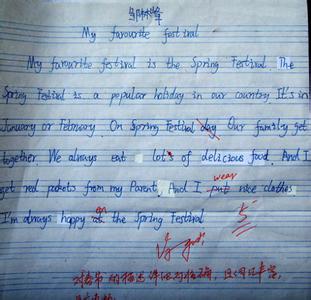 My favourite festival
My favourite festival is the Spring Festival. The
Spring Festival is a popular holiday in our country It's in
January or February. On Spring Festival day Our family get
together We always eat lots of delicious food. And I
get red pockets from my Parent. And I put nice clothes
wear
I'm always happy at the Spring Festival
on
5
Very good!
对春节的描述